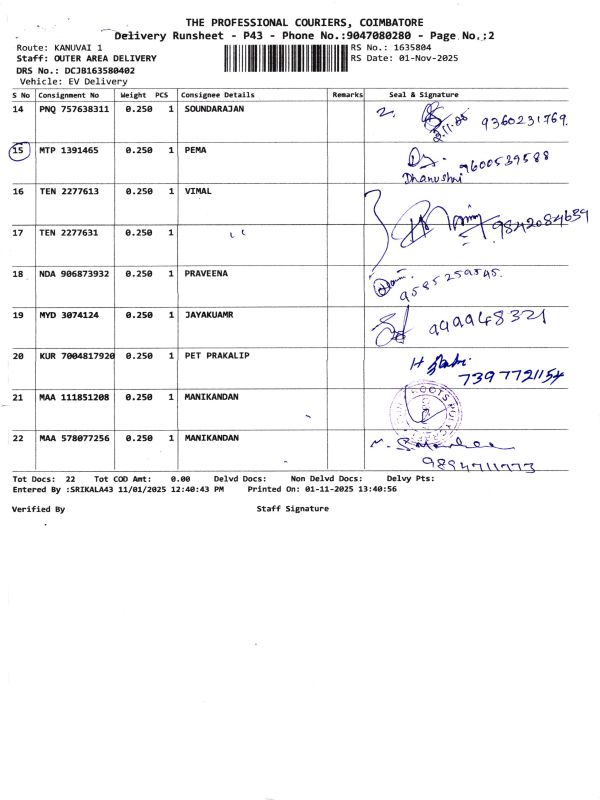 THE PROFESSIONAL COURIERS, COIMBATORE
Delivery Runsheet - P43 - Phone No.:9047080280 - Page No.:2
Route: KANUVAI 1 RS No.: 1635804
Staff: OUTER AREA DELIVERY RS Date: 01-Nov-2025
DRS No.: DCJB163580402
Vehicle: EV Delivery
S No Consignment No Weight PCS Consignee Details Remarks Seal & Signature
14 PNQ 757638311 0.250 1 SOUNDARAJAN 2.11.25 9360231769.
15 MTP 1391465 0.250 1 PEMA 9600539588
Dhanushri
16 TEN 2277613 0.250 1 VIMAL
17 TEN 2277631 0.250 1 " 9842084639
18 NDA 906873932 0.250 1 PRAVEENA 9585259545.
19 MYD 3074124 0.250 1 JAYAKUAMR 999948321
20 KUR 7004817920 0.250 1 PET PRAKALIP H
7397721154
21 MAA 111851208 0.250 1 MANIKANDAN
22 MAA 578077256 0.250 1 MANIKANDAN
9894711773
Tot Docs: 22 Tot COD Amt: 0.00 Delvd Docs: Non Delvd Docs: Delvy Pts:
Entered By :SRIKALA43 11/01/2025 12:40:43 PM Printed On: 01-11-2025 13:40:56
Verified By Staff Signature